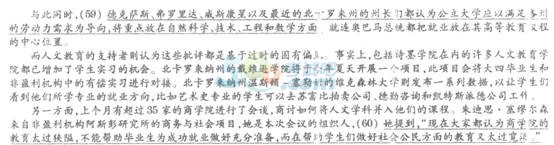 与此同时，(59) 德克萨斯、弗罗里达、威斯康星以及最近的北卡罗来州的州长们都认为公立大学应以满足各州
的劳动力需求为导向，将重点放在自然科学、技术、工程和数学方面 就连奥巴马总统都把就业放在其高等教育文程
的中心位置。
而人文教育的支持者则认为这些批评都是基于过时的固有偏 事实上，包括诗墨学院在内的许多人文教育学
院都已增加了学生实习的机会。北卡罗来纳州的戴维逊学院将于 年夏天开展一个项目，此项目会将大四毕业生和
非盈利机构中的有偿实习进行对接。北卡罗来纳州温斯顿 塞勒 的维克森林大学则发布一系列数据，以让学生们
看到他们所学专业的就业方向，比如艺术史专业的学生可以去苏富比拍卖公司、德勤咨询和凯特斯派德公司工作。
另一方面，上个月有超过 35 家的商学院进行了会谈，商讨如何将人文学科并入他们的课程。朱迪思·塞缪尔森
来自非盈利机构阿斯彭研究所的商务与社会项目，她是本次会议的组织人，(60) 她提到，“现在大家都认为商学院的
教育太过狭隘，不能帮助毕业生为成功就业做好充分准备，而在帮助学生们做好社会公民方面的教育又太过宽泛。”